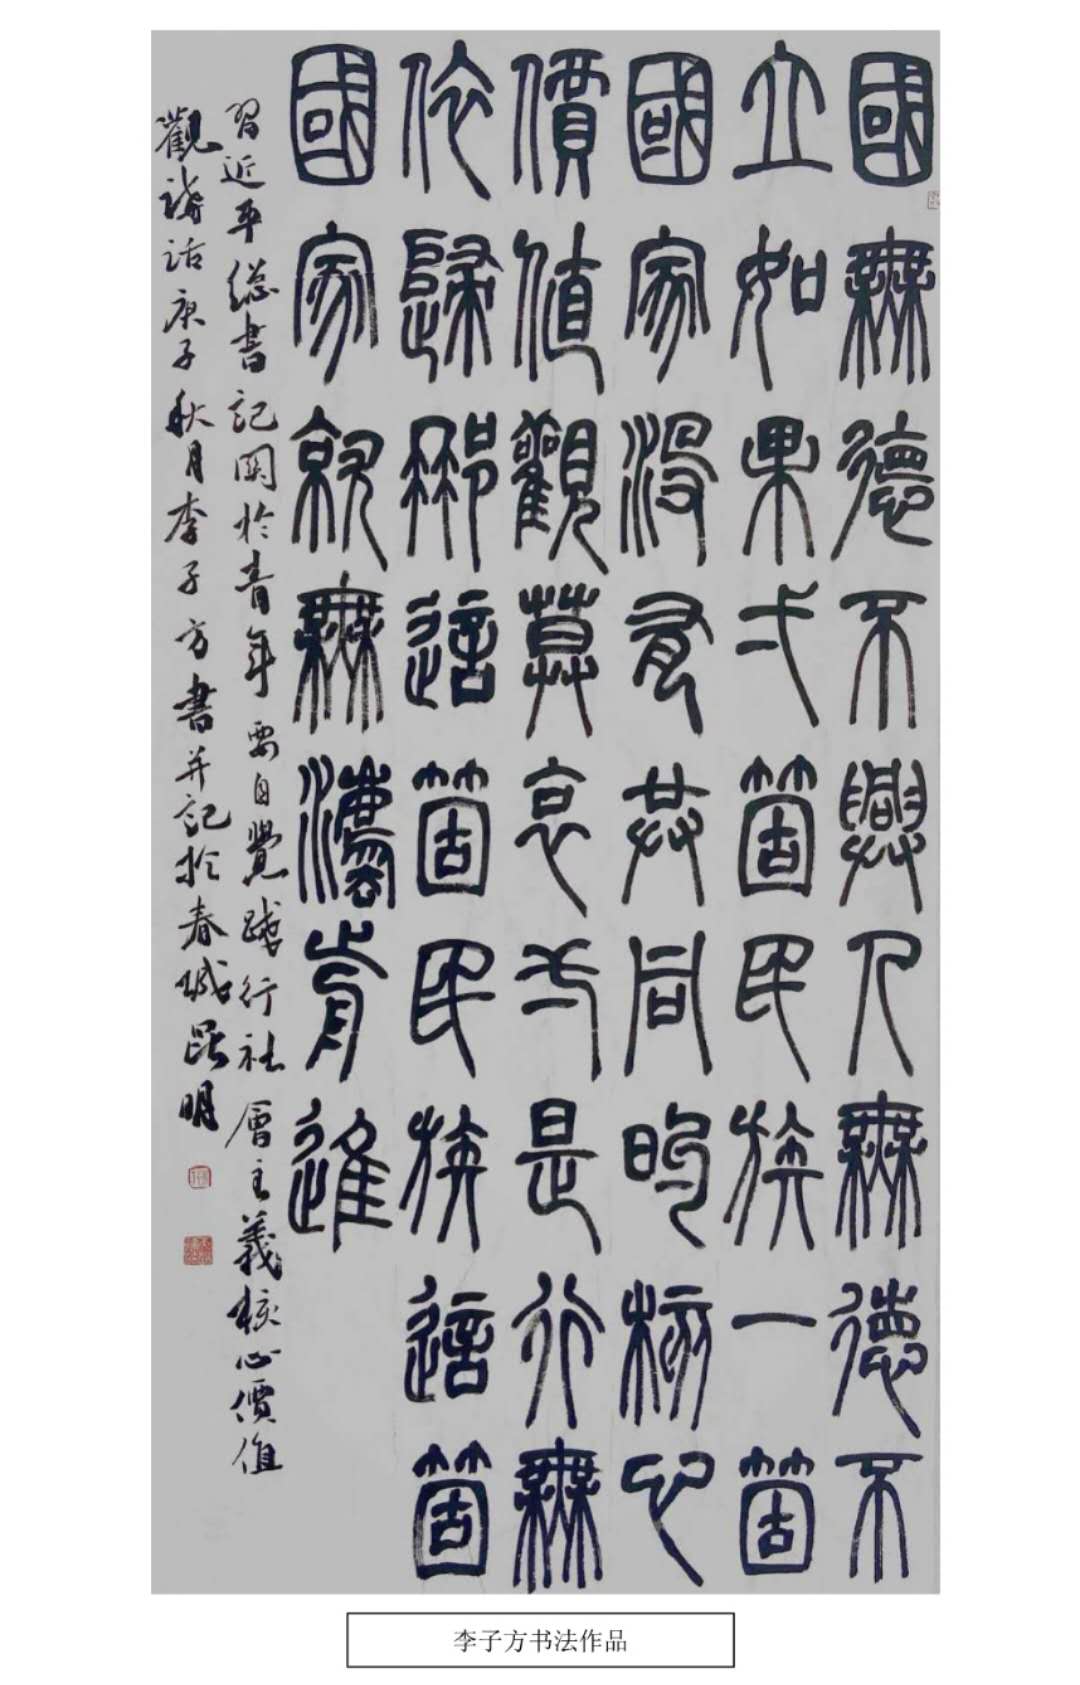 國無德不興人無德不
立如果一個民族一個
國家沒有共同的核心
價值觀莫衷一是行無
依歸那這個民族這個
國家就無法前進
習近平総書記関於青年要自覺踐行社會主義核心價值
觀講話庚子秋月李子方書并記於春城昆明
李子方书法作品